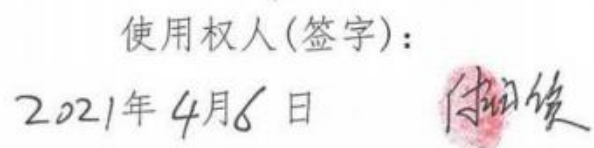 使用权人(签字):
2021年4月6日